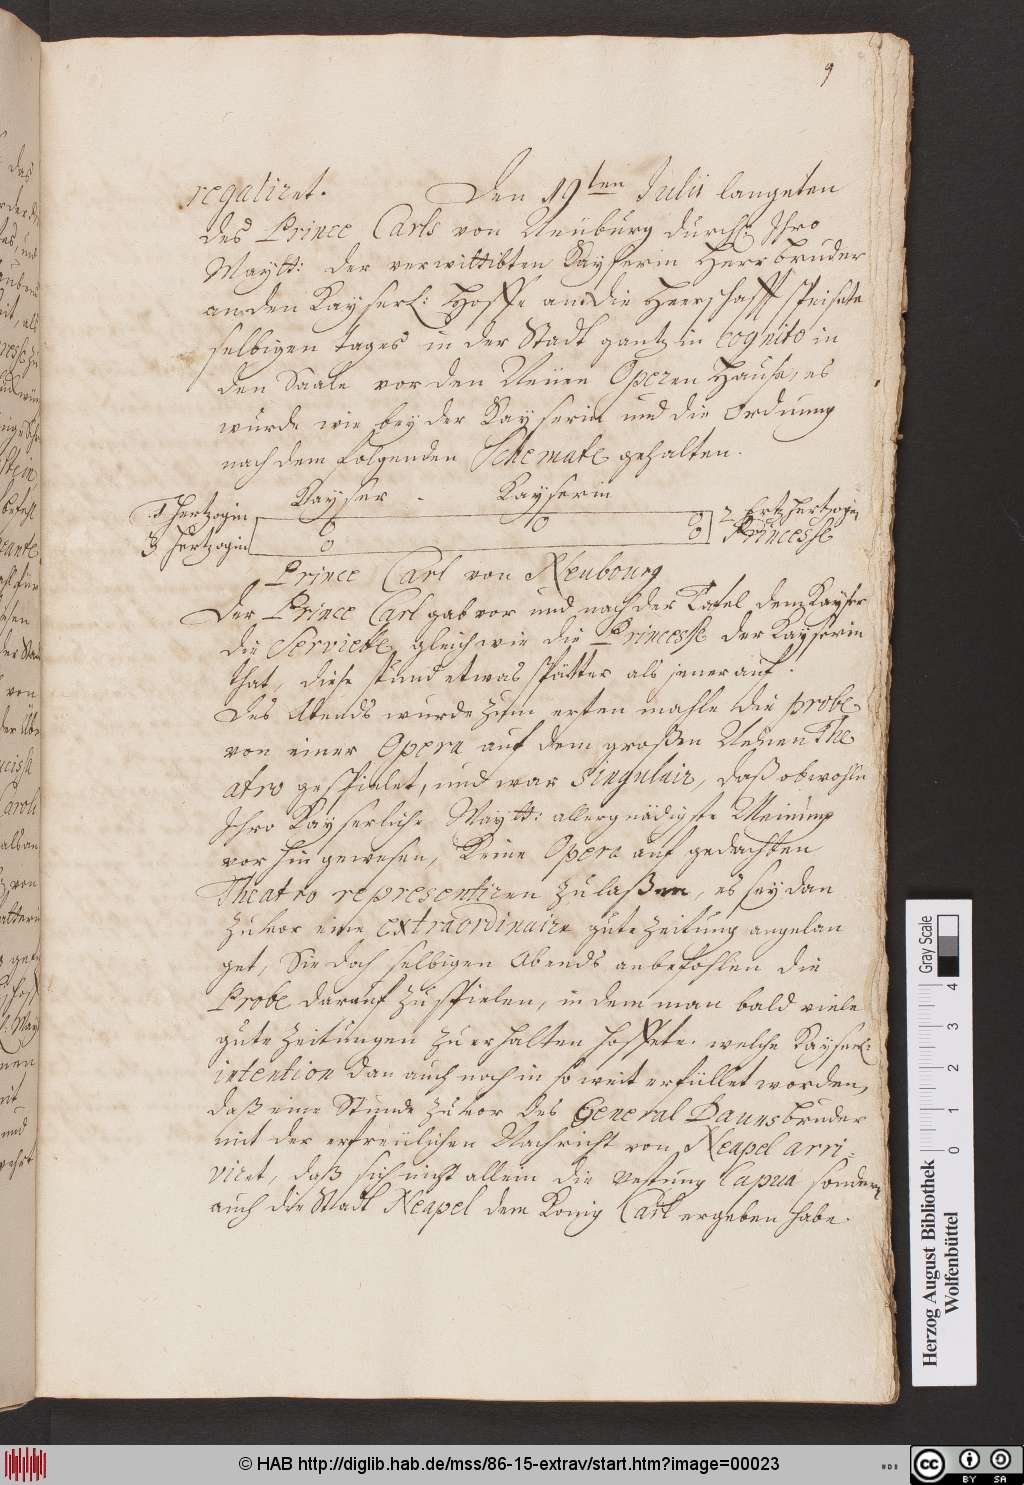 9
regaliret. Den 19ten Julii langeten
des Prince Carls von Neuburg durchl: Ihro
Maytt: der verwittibten Kayserin Herr bruder
an den Kayserl: Hoffe an die Herrschafft speisete
selbigen tages in der Stadt gantz in cognito in
den Saale vor den Neuen Operen Hause, es
wurde wie bey der Kayserin und die Ordnung
nach dem folgenden Schemate gehalten.
Kayser - Kayserin
Hertzogin 2 Ertzhertzogin
3 Hertzogin Princesse
Prince Carl von Neubourg
Der Prince Carl gab vor und nach der Tafel dem Kayser
die Serviette gleich wie die Princesse der Kayserin
that, diese stund etwas später als jener auf.
Des Abends wurde zum ersten mahle die probe
von einer Opera auf dem großen Neuen The
atro gespielet, und war singulair, daß obwohln
Ihro Kayserliche Maytt: allergnädigste Meinung
vorhin gewesen, Keine Opera auf gedachten
Theatro representiren zulaßen, es sey dan
zuvor eine extraordinaire gute Zeitung angelan
get, Sie doch selbigen Abends anbefohlen die
Probe darauf zu spielen, in dem man bald viele
gute Zeitungen zu erhalten hoffete. welche Kayserl:
intention dan auch noch in so weit erfüllet worden,
daß eine Stunde zuvor des General Dauns bruder
mit der erfreulichen Nachricht von Neapel arri-
viret, daß sich nicht allein die Vestung Capua sondern
auch die Stadt Neapel dem König Carl ergeben habe.
Herzog August Bibliothek
Wolfenbüttel
Gray Scale
0 1 2 3 4
© HAB http://diglib.hab.de/mss/86-15-extrav/start.htm?image=00023
cc BY SA